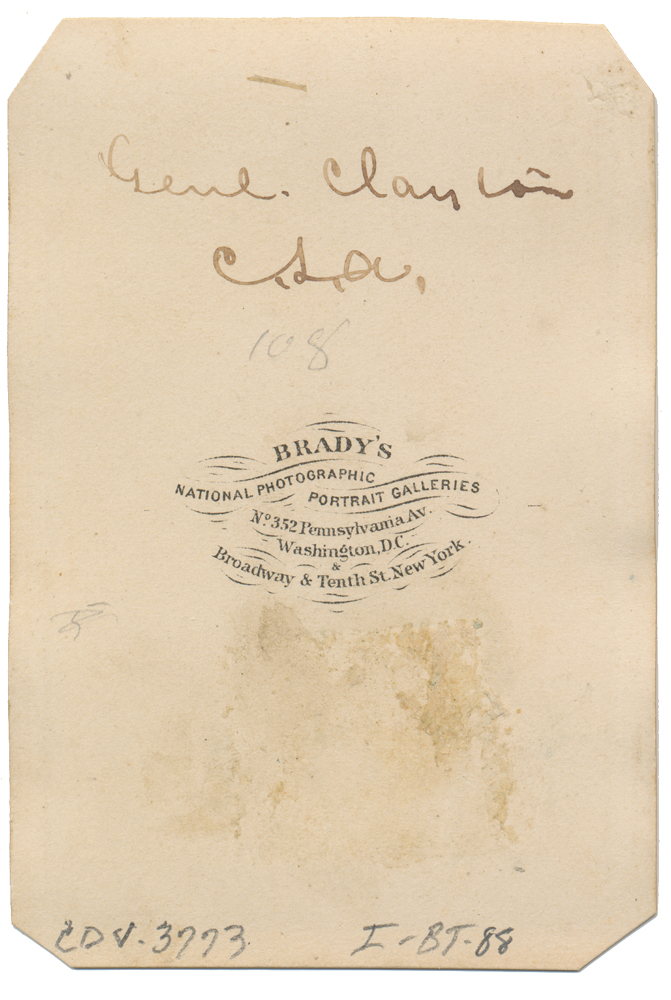 Genl. Clayton
C.S.A.
108
BRADY'S
NATIONAL PHOTOGRAPHIC
PORTRAIT GALLERIES
Nº 352 Pennsylvania Av.
Washington, D.C.
&
Broadway & Tenth St. New York.
CDV-3773
I-BT-88